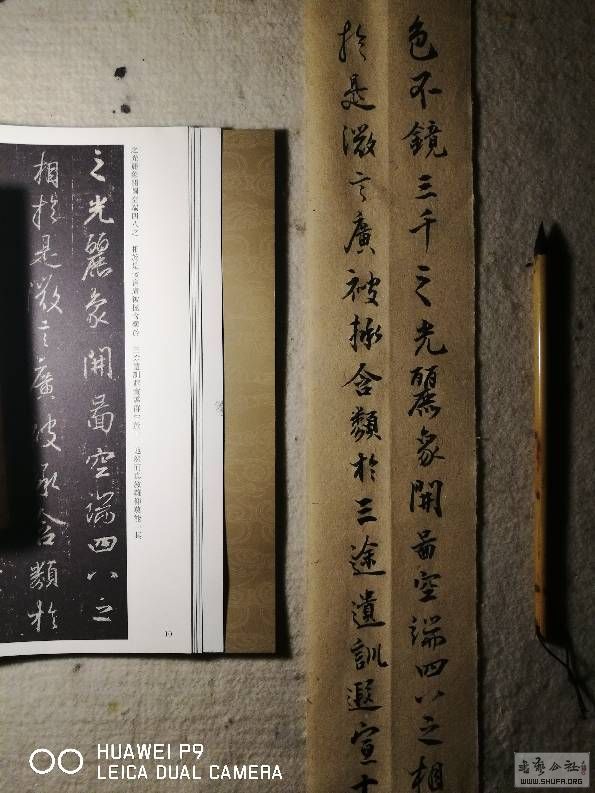 色不鏡三千之光麗象開啚空端四八之相
於是微言廣被拯含類於三途遺訓遐宣十
之光麗象開啚空端四八之
相於是微言廣彼拯含類於
10
HUAWEI P9
LEICA DUAL CAMERA
书艺公社
WWW.SHUFA.ORG